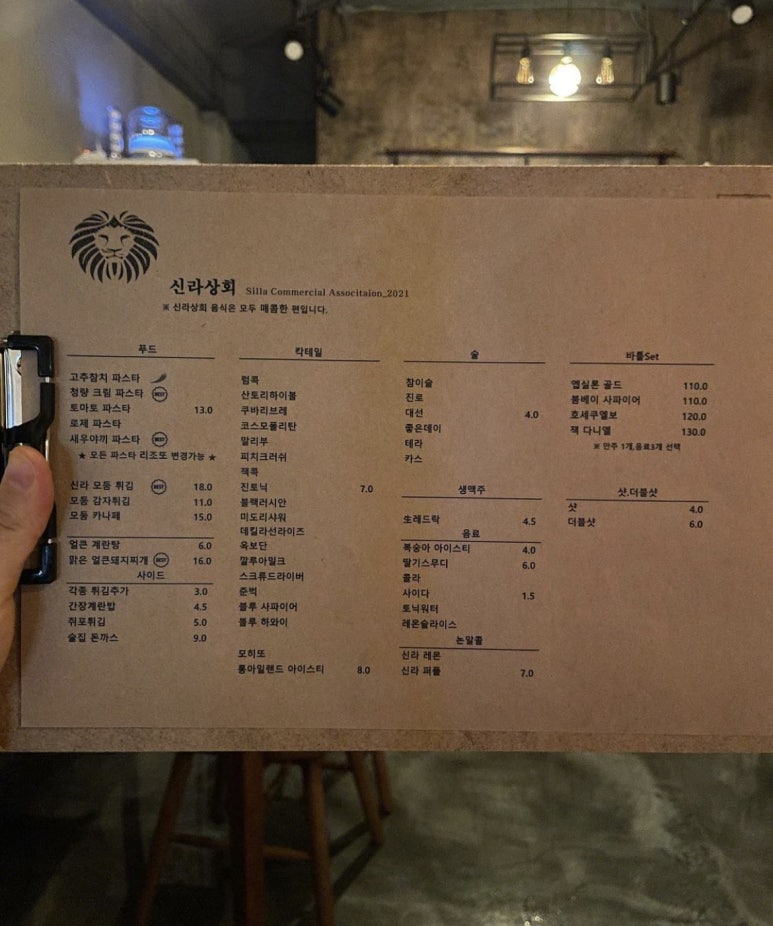 신라상회 Silla Commercial Associtaion_2021
※ 신라상회 음식은 모두 매콤한 편입니다.
푸드
고추참치 파스타
청량 크림 파스타 BEST
토마토 파스타 13.0
로제 파스타
새우야끼 파스타 BEST
★ 모든 파스타 리조또 변경가능 ★
신라 모둠 튀김 BEST 18.0
모둠 감자튀김 11.0
모둠 카나페 15.0
얼큰 계란탕 6.0
맑은 얼큰돼지찌개 BEST 16.0
사이드
각종 튀김추가 3.0
간장계란밥 4.5
쥐포튀김 5.0
술집 돈까스 9.0
칵테일
럼콕
산토리하이볼
쿠바리브레
코스모폴리탄
말리부
피치크러쉬
잭콕
진토닉 7.0
블랙러시안
미도리샤워
데킬라선라이즈
옥보단
깔루아밀크
스크류드라이버
준벅
블루 사파이어
블루 하와이
모히또
롱아일랜드 아이스티 8.0
술
참이슬
진로
대선 4.0
좋은데이
테라
카스
생맥주
生레드락 4.5
음료
복숭아 아이스티 4.0
딸기스무디 6.0
콜라
사이다 1.5
토닉워터
레몬슬라이스
논알콜
신라 레몬
신라 퍼플 7.0
바틀Set
엡실론 골드 110.0
봄베이 사파이어 110.0
호세쿠엘보 120.0
잭 다니엘 130.0
※ 안주 1개,음료3개 선택
샷.더블샷
샷 4.0
더블샷 6.0